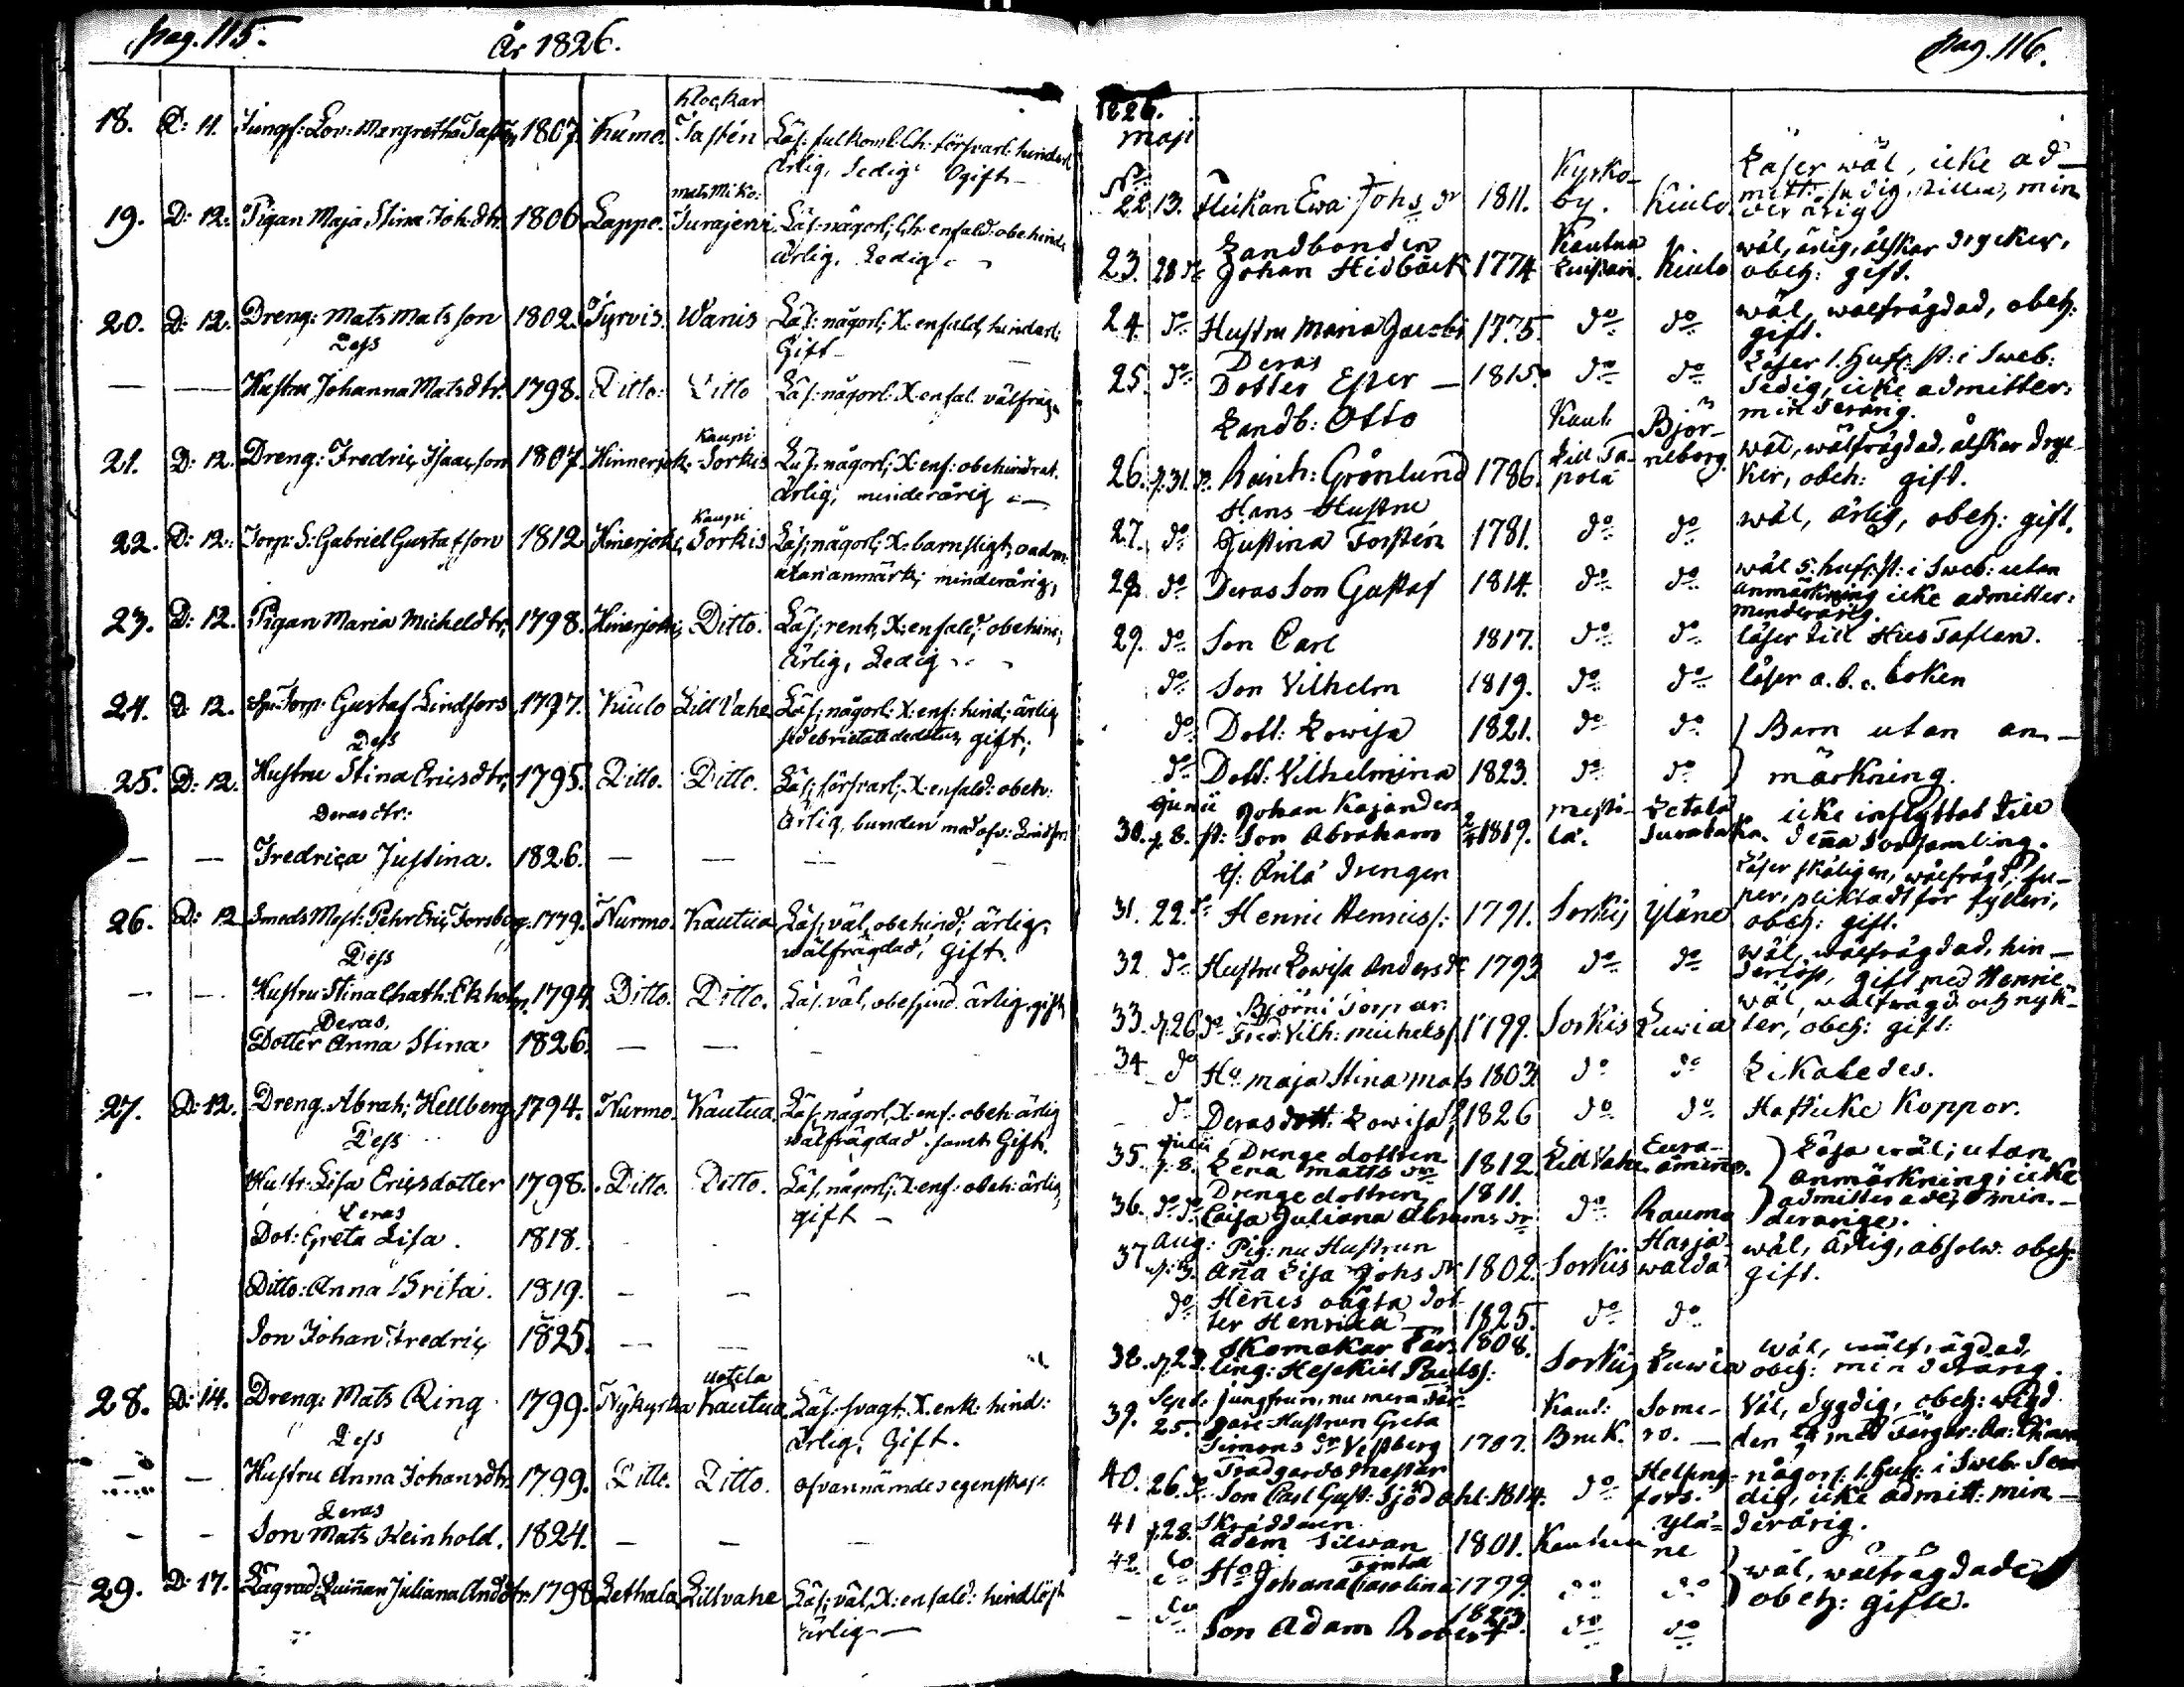 pag. 115.
År 1826.
18. D: 11. Jungf: Lov: Margretha Tasten 1807. Kumo. Klockar Tasten Läs: fulkoml: Ch: försvarl: hinderl
ärlig, Sedig Ogift
19. D: 12. Pigan Maja Stina Joh:dtr. 1806 Lappo. Mats Miko: Turajervi Läs: någorl; Ch: enfald: obehind:
ärlig, Ledig
20. D: 12. Dreng: Mats Matsson 1802. Tyrvis. Wanis Läs: någorl; X: enfald, hinderl;
Gift
Dess
Hustru Johanna Matsdtr. 1798. Ditto: Ditto Läs: någorl: X: enfal: välfräg:
21. D: 12. Dreng: Fredric Isaacson 1807. Hinnerjok: Kaupi Sorkis Läs: någorl; X: enf: obehindrat.
ärlig; minderårig
22. D: 12. Torp: S: Gabriel Gustafson 1812 Hinerjoki, Kaupi Sorkis Läs; någorl; X: barnsligt; oadm:
utan anmärk; minderårig,
23. D: 12. Pigan Maria Micheldtr, 1798. Hinerjoki; Ditto. Läs; rent, X: enfald: obehind;
ärlig, Ledig
24. D: 12. Torp: Gustaf Lindfors 1797. Kiulo Lill Vahe Läs; någorl: X: enf: hind; ärlig
ebrietati deditus, gift;
Dess
25. D: 12. Hustru Stina Ericsdtr, 1795. Ditto. Ditto. Läs; försvarl; X: enfald: obeh:
ärlig, bunden med ofv: Lindfors
Deras dtr:
Fredrica Justina. 1826.
26. D: 12 Smeds Mäst: Pehr Eric Forsberg. 1779. Nurmo. Kautua Läs; väl, obehind; ärlig,
wälfrägdad, Gift.
Dess
Hustru Stina Cathar: Ekholm. 1794 Ditto. Ditto. Läs: väl, obehind: ärlig, gift
Deras
Dotter Anna Stina 1826.
27. D: 12. Dreng. Abrah; Hellberg 1794. Nurmo. Kautua. Läs; någorl, X: enf: obeh: ärlig
wälfrägdad samt Gift.
Dess
Hustr: Lisa Ericsdotter 1798. Ditto. Ditto. Läs, någorl; X: enf: obeh: ärlig
gift
Deras
Dot: Greta Lisa. 1818.
Ditto: Anna Brita. 1819.
Son Johan Fredric 1825.
28. D: 14. Dreng: Mats Ring 1799. Nykyrka Uotila Kautua Läs: svagt, X. enk: hind:
ärlig, Gift.
Dess
Hustru Anna Johansdtr. 1799. Ditto. Ditto. ofvannämde egenskap:
Deras
Son Mats Reinhold. 1824.
29. D: 17. Lägrad: Quiñan Juliana Andsdtr: 1798 Lethala Lillvahe Läs: väl, X: enfald: hindlöst
ärlig
pag. 116.
1826.
Maji
No
22. 13. Flickan Ewa Johs dr 1811. Kyrkoby. Kiulo Läser wäl, icke ad-
mitt: sedig, stilla, min
derårig
23. 28 do Landbonden Johan Hidbäck 1774 Kautua Kiulo wäl, ärlig, älskar drycker,
obeh: gift.
24. do Hustru Maria Jacobs 1775. do do wäl, wälfrägdad, obeh:
gift.
25. do Deras Dotter Ester 1815. do do Läser 1. Huf: st: i Sweb:
Sedig, icke admitter:
minderårig.
26. 31. Landb: Otto Reinh: Grönlund 1786. Kaut: Lill Tapola Björneborg. wäl, wälfrägdad, älskar dryc-
ker, obeh: gift.
27. do Hans Hustru Justina Forstén 1781. do do wäl, ärlig, obeh: gift.
28. do Deras Son Gustaf 1814. do do wäl 5. huf: st: i Sweb: utan
anmärkning icke admitter:
minderårig.
29. do Son Carl 1817. do do läser till Hus Taflan.
do Son Vilhelm 1819. do do läser a.b.c. boken
do Dott: Lowisa 1821. do do Barn utan an-
do Dott: Vilhelmina 1823. do do märkning.
Junii
30. 8. Johan Kajanders Son Abraham 1819. Letala icke inflyttat till
denna Församling.
31. 22. Änilä Drengen Henric Henrics: 1791. Sorkis Yläne Läser skäligen, wälfrägd, su-
per, pliktadt för fylleri,
obeh: gift.
32 do Hustru Lowisa Anders dr 1793 do do wäl, wälfrägdad, hin-
derlöst, gift med Henric.
33. 26 do Björni Torpar: Fred: Vilh: Michels: 1799. Sorkis Luvia wäl, wälfrägd: och nyk-
ter, obeh: gift:
34 do Hu: Maja Stina Mats 1803 do do Likaledes.
do Deras Dott: Lowisa 1826 do do Haft icke Koppor.
Julii
35. 8. Drenge dottren Lena Matts dr 1812. Lill Vahe Eura-åminne. Läsa wäl; utan
anmärkning; icke
36. do do Drenge dottren Caisa Juliana Abrams dr 1811. do Rauma admitterade, min-
derårige.
Aug:
37 3. Pig: nu Hustrun Aña Lisa Johs dr 1802. Sorkis Harjawalda wäl, ärlig, absolv: obeh:
gift.
do Heñes oägta dotter Henrica 1825. do do
38. 23. Skomakar Lärling: Hesekiel Pauls: 1808. Sorkis Luwia wäl, wälfrägdad,
obeh: minderårig.
Sept:
39. 25. Jungfrun, nu mera Färgare Hustrun Greta Simons dr Vessberg 1787. Kaut: Bruk. Somero. Väl, dygdig, obeh: wigd
den med Färgar:
40. 26. Trädgårds Mästar Son Carl Gust: Sjödahl 1814. do Helsingfors. någorl: 1. Huf: i Sweb: Se-
dig, icke admitt: min-
derårig.
41 28. Skräddaren Adam Silwan 1801. Kautua Yläne wäl, wälfrägdade,
42. do Hu: Johana Carolina 1799. do do obeh: gifte.
do Son Adam Robert 1823. do do